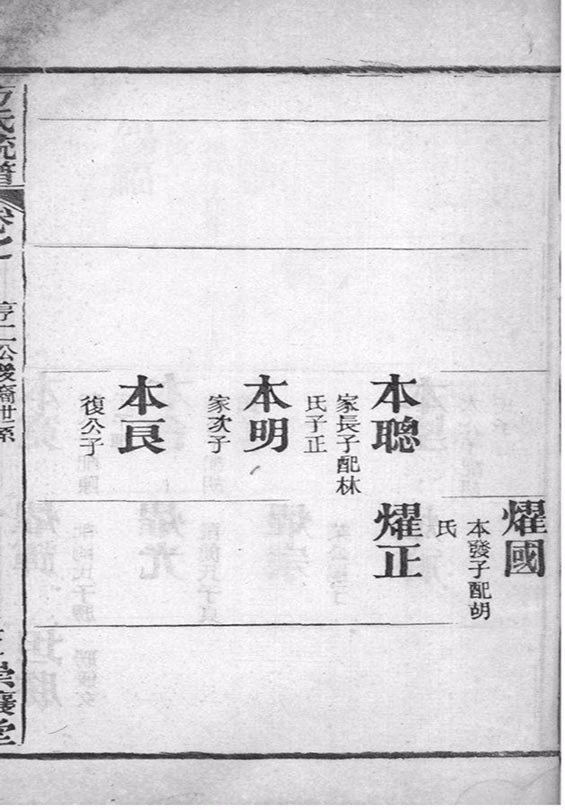 耀國
本發子配胡
氏
本聰
家長子配林
氏子正
耀正
本明
家次子
本良
復公子
方氏統譜
卷之
亨二公後裔世系
崇讓堂